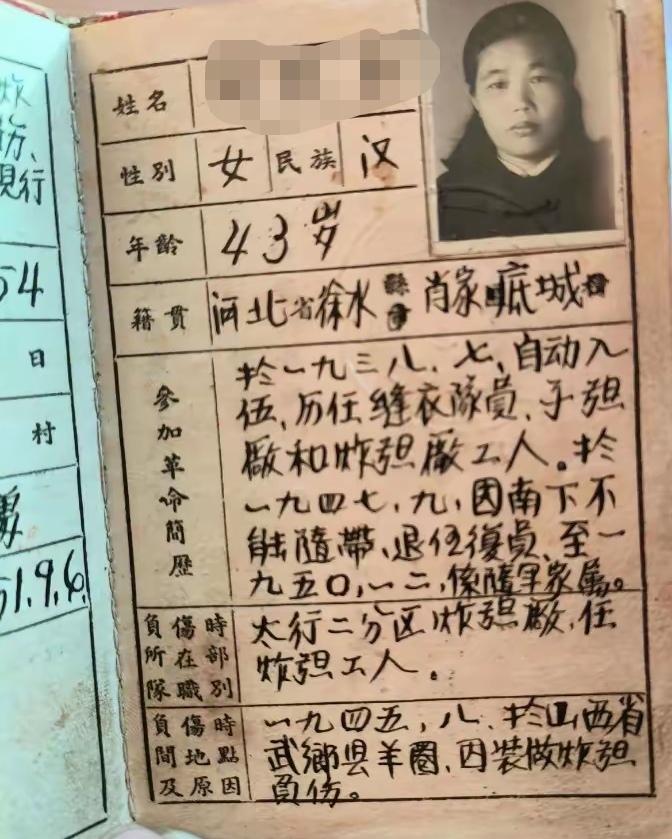 炸
伤、
現行
54
日
村
51.9.6.
姓名
性別 女 民族 汉
年齡 43岁
籍貫 河北省徐水縣 肖家㡳城
參加革命簡歷
扵一九三八、七、自动入
伍、历任缝衣隊員、子弹
廠和炸弹廠工人。扵
一九四七，九，因南下不
能隨帶、退伍復員、至一
九五〇，一二，係隨軍家属。
負傷時
所在部
隊職別
太行二分区炸弹廠，任
炸弹工人。
負傷時
間地點
及原因
一九四五，八、扵山西省
武鄉县羊圈，因装做炸弹
負伤。